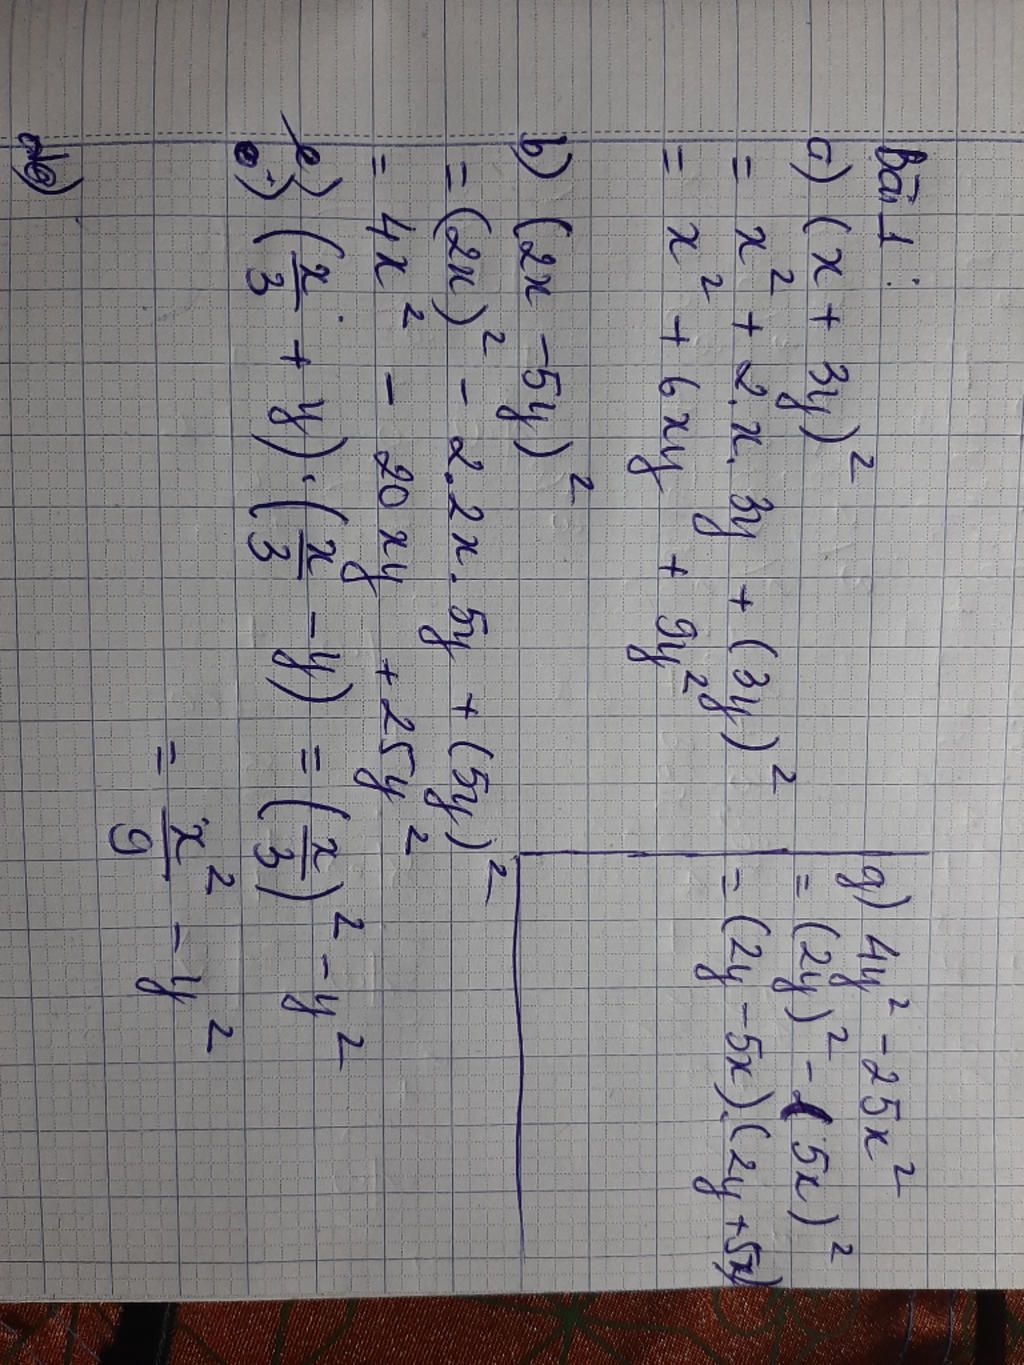 Bài 1:
a) (x + 3y)²
= x² + 2.x.3y + (3y)²
= x² + 6xy + 9y²
b) (2x - 5y)²
= (2x)² - 2.2x.5y + (5y)²
= 4x² - 20xy + 25y²
e) (x/3 + y).(x/3 - y) = (x/3)² - y²
= x²/9 - y²
g) 4y² - 25x²
= (2y)² - (5x)²
= (2y - 5x).(2y + 5x)